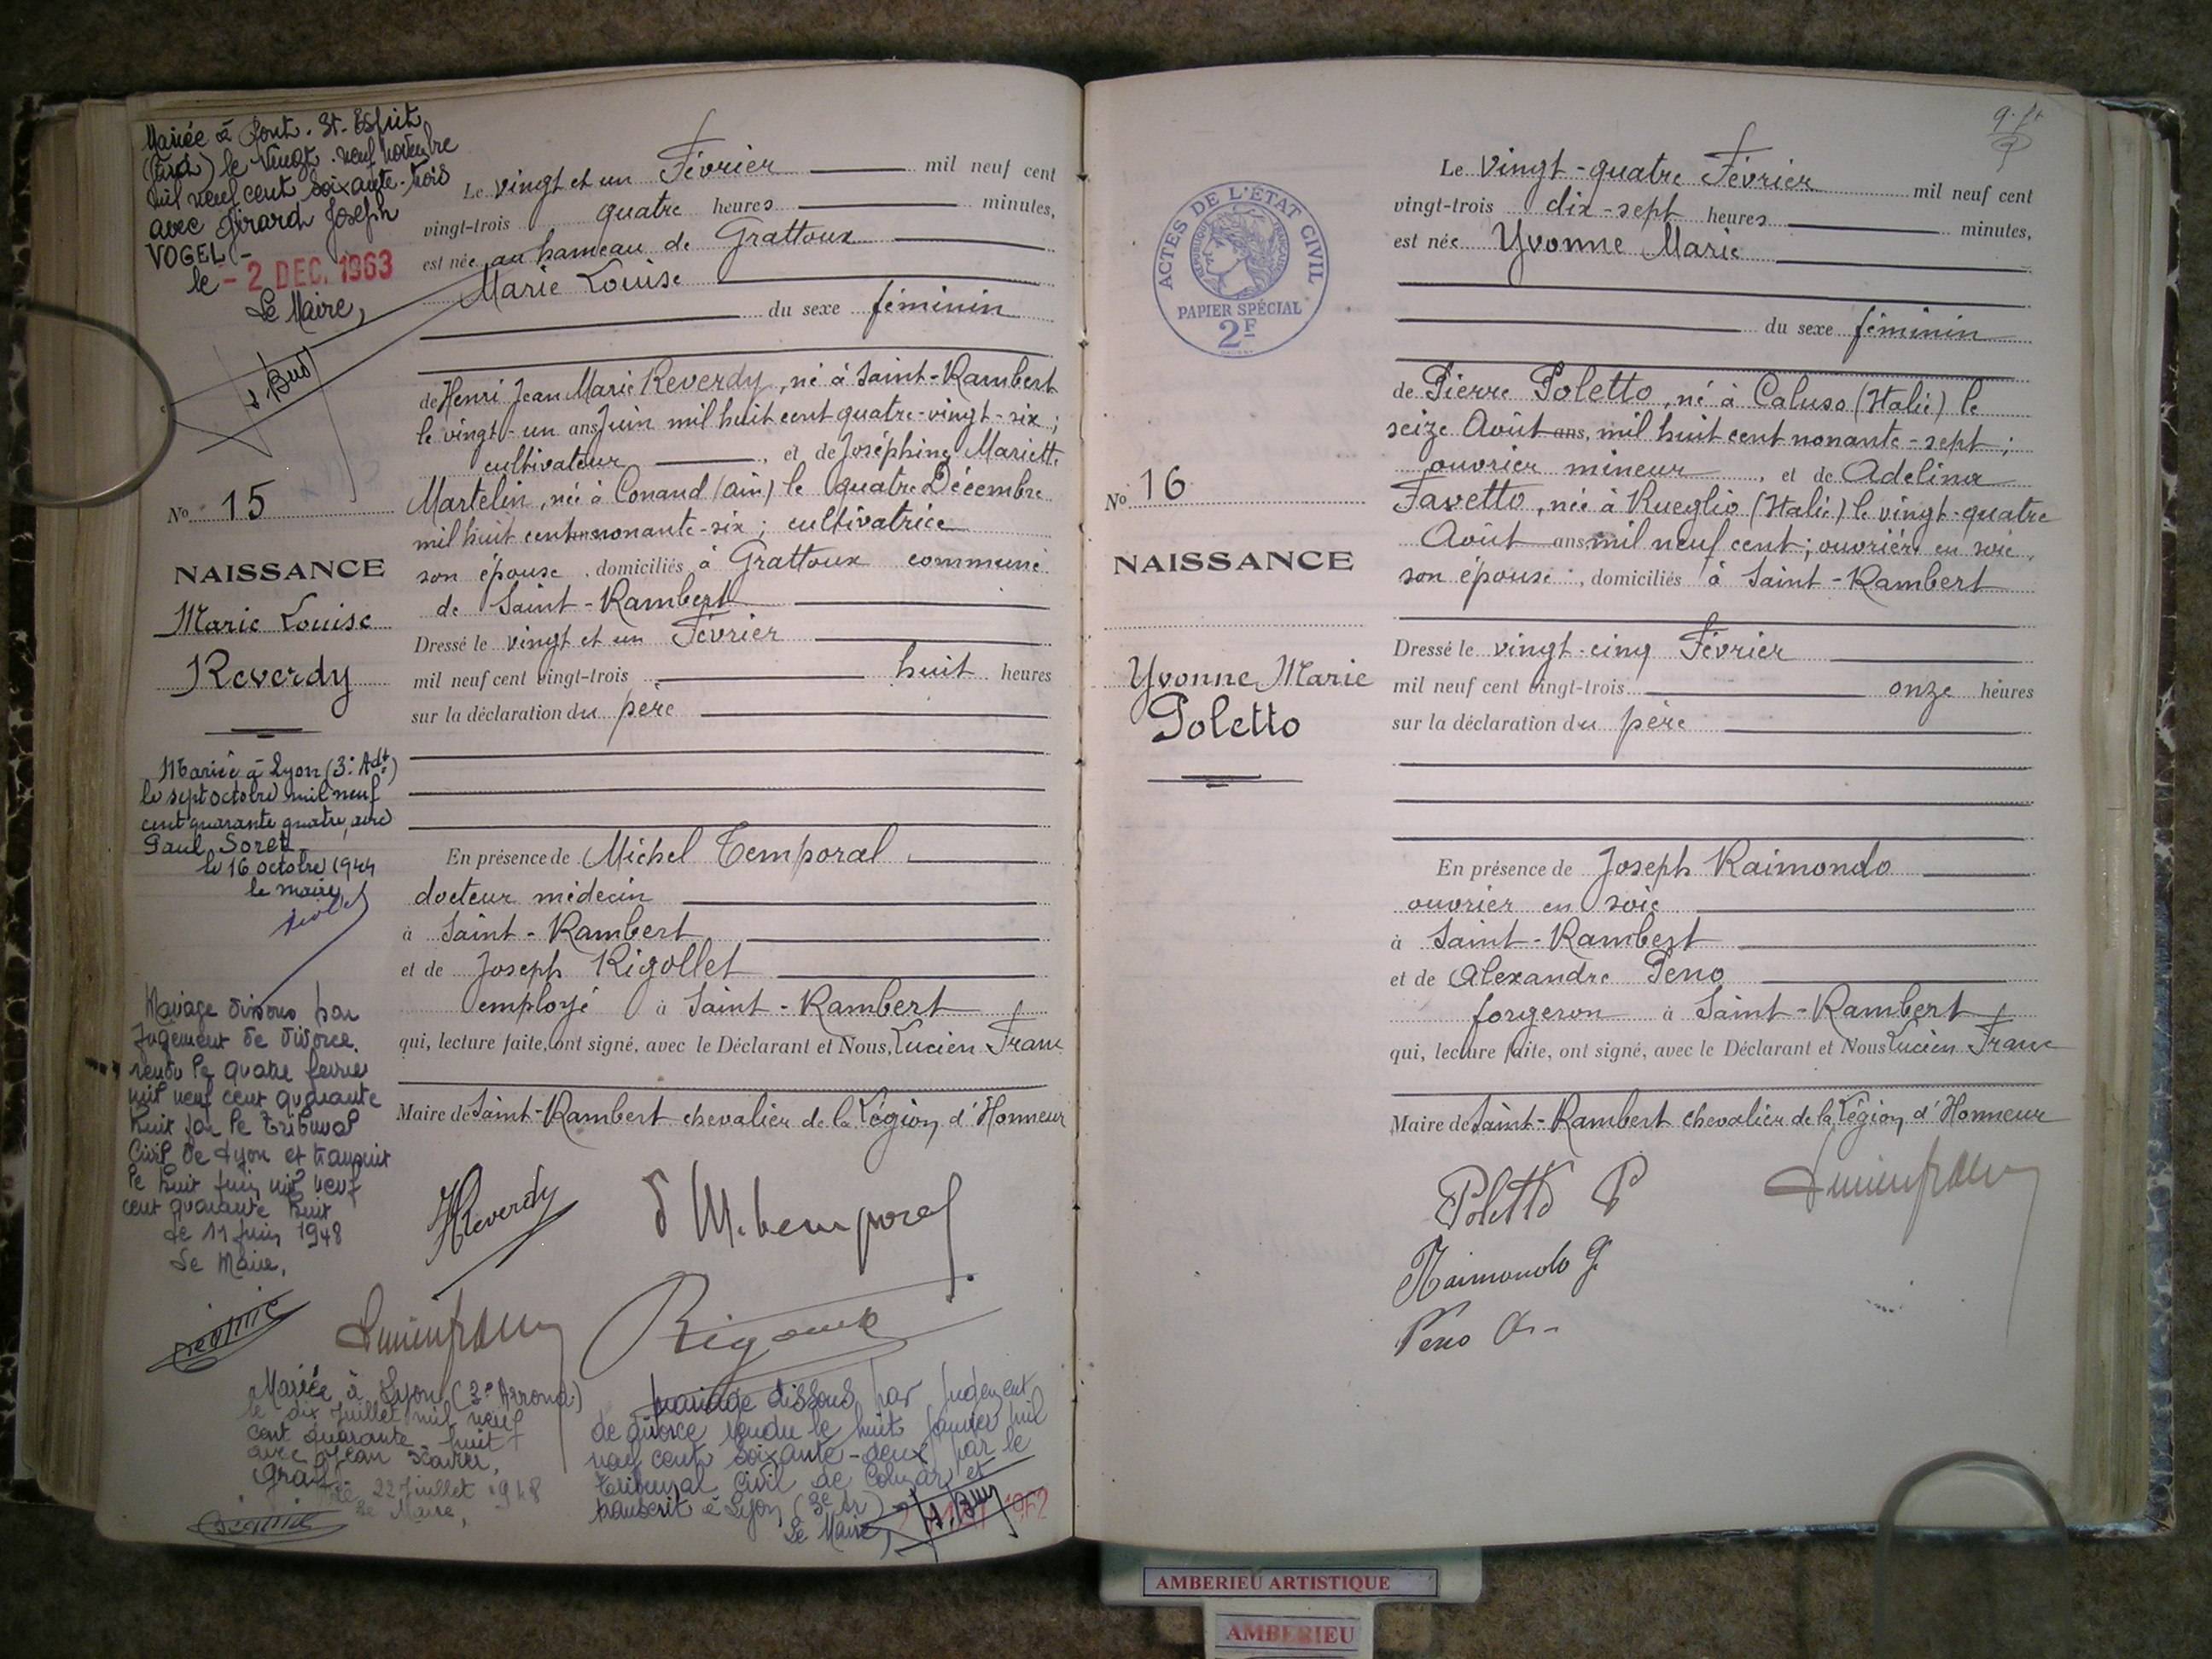 Mariée à Pont-St-Esprit
(Gard) le vingt-neuf novembre
mil neuf cent soixante-trois
avec Gérard Joseph
VOGEL.-
le - 2 DEC. 1963
Le Maire,
No 15
NAISSANCE
Marie Louise
Reverdy
Mariée à Lyon (3e Adt)
le sept octobre mil neuf
cent quarante quatre, avec
Paul Soret
le 16 octobre 1944
le maire
Mariage dissous par
Jugement de divorce
rendu le quatre fevrier
mil neuf cent quarante
huit par le Tribunal
Civil de Lyon et transcrit
le huit juin mil neuf
cent quarante huit
Le 11 juin 1948
Le Maire,
Le vingt et un Février mil neuf cent
vingt-trois quatre heures minutes,
est née au hameau de Grattoux
Marie Louise
du sexe féminin
de Henri Jean Marie Reverdy, né à Saint-Rambert
le vingt-un ans Juin mil huit cent quatre-vingt-six ;
cultivateur , et de Joséphine Mariette
Martelin, née à Conand (Ain) le quatre Décembre
mil huit cent nonante-six ; cultivatrice
son épouse , domiciliés à Grattoux commune
de Saint-Rambert
Dressé le vingt et un Février
mil neuf cent vingt-trois huit heures
sur la déclaration du père
En présence de Michel Temporal
docteur médecin
à Saint-Rambert
et de Joseph Rigollet
employé à Saint-Rambert
qui, lecture faite, ont signé, avec le Déclarant et Nous, Lucien Franc
Maire de Saint-Rambert chevalier de la Légion d'Honneur
HReverdy
d M. temporal
Lucien franc
Mariée à Lyon (3e Arrond.)
le dix Juillet mil neuf
cent quarante-huit
avec Jean Xavier,
Graff
Le 22 Juillet 1948
Le Maire,
Mariage dissous par Jugement
de divorce rendu le huit Janvier mil
neuf cent soixante-deux par le
Tribunal Civil de Colmar et
transcrit à Lyon (3e Ar)
Le Maire, 1962
ACTES DE L'ÉTAT CIVIL
RÉPUBLIQUE FRANÇAISE
PAPIER SPÉCIAL
2F
No 16
NAISSANCE
Yvonne Marie
Poletto
Le vingt-quatre Février mil neuf cent
vingt-trois dix-sept heures minutes,
est née Yvonne Marie
du sexe féminin
de Pierre Poletto, né à Caluso (Italie) le
seize Août ans, mil huit cent nonante-sept ;
ouvrier mineur , et de Adelina
Favetto, née à Rueglio (Italie) le vingt-quatre
Août ans, mil neuf cent ; ouvrière en soie,
son épouse , domiciliés à Saint-Rambert
Dressé le vingt-cinq Février
mil neuf cent vingt-trois onze heures
sur la déclaration du père
En présence de Joseph Raimondo
ouvrier en soie
à Saint-Rambert
et de Alexandre Peno
forgeron à Saint-Rambert
qui, lecture faite, ont signé, avec le Déclarant et Nous Lucien Franc
Maire de Saint-Rambert chevalier de la Légion d'Honneur
Poletto P
Lucien franc
Raimondo G
Peno A
AMBERIEU ARTISTIQUE
AMBERIEU